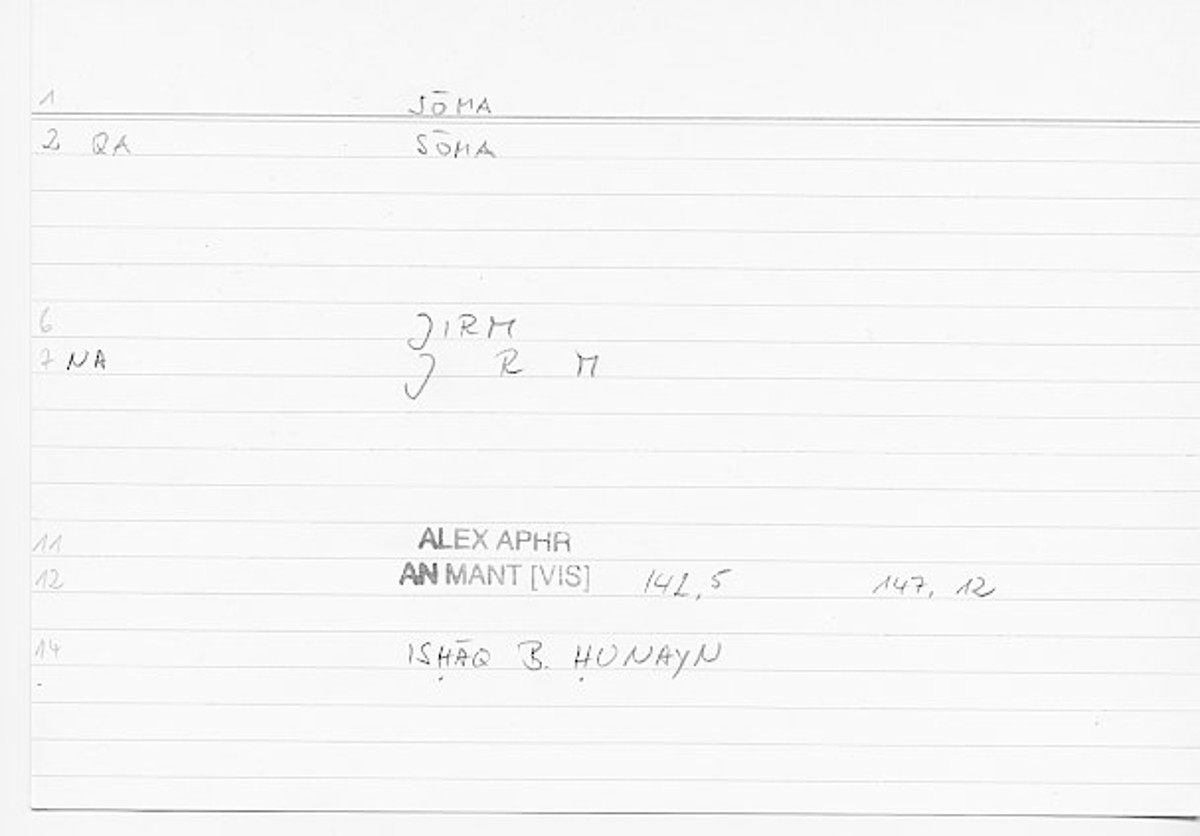 1 SŌMA
2 QA SŌMA
6 JIRM
7 NA J R M
11 ALEX APHR
12 AN MANT [VIS] 142,5 147, 12
14 ISḤĀQ B. ḤUNAYN